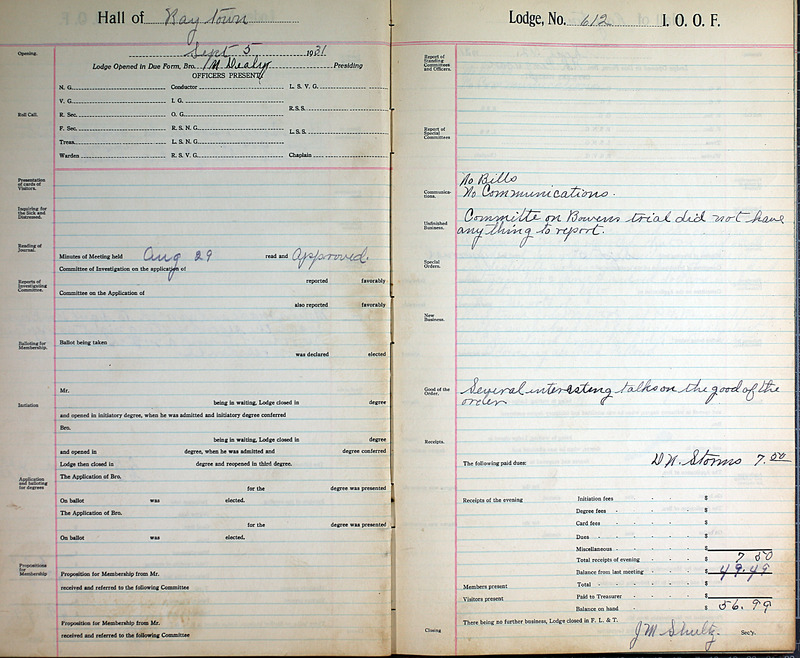 Hall of Raytown
Sept 5 1931
Opening.
Lodge Opened in Due Form, Bro. Presiding
OFFICERS PRESENT
N. G. Conductor L. S. V. G.
V. G. I. G.
R.S.S.
Roll Call.
R. Sec. O. G.
F. Sec. R. S. N. G.
L.S.S.
Treas. L. S. N. G.
Warden R. S. V. G. Chaplain
Presentation
of cards of
Visitors.
Inquiring for
the Sick and
Distressed.
Reading of
Journal.
Minutes of Meeting held Aug 29 read and Approved.
Committee of Investigation on the application of
Reports of
Investigating
Committee.
reported favorably
Committee on the Application of
also reported favorably
Balloting for
Membership.
Ballot being taken
was declared elected
Mr.
Initiation
being in waiting, Lodge closed in degree
and opened in initiatory degree, when he was admitted and initiatory degree conferred
Bro.
being in waiting, Lodge closed in degree
and opened in degree, when he was admitted and degree conferred
Lodge then closed in degree and reopened in third degree.
Application
and balloting
for degrees
The Application of Bro.
for the degree was presented
On ballot was elected.
The Application of Bro.
for the degree was presented
On ballot was elected.
Propositions
for
Membership
Proposition for Membership from Mr.
received and referred to the following Committee
Proposition for Membership from Mr.
received and referred to the following Committee
Lodge, No. 612 I. O. O. F.
Report of
Standing
Committees
and Officers.
Report of
Special
Committees
No Bills
Communica-
tions.
No Communications.
Unfinished
Business.
Committe on Bowens trial did not have
any thing to report.
Special
Orders.
New
Business.
Good of the
Order.
Several interesting talks on the good of the
order
Receipts.
The following paid dues: D. W. Storms 7.50
Receipts of the evening Initiation fees $
Degree fees $
Card fees $
Dues $
Miscellaneous $
Total receipts of evening $ 7 50
Balance from last meeting $ 49.49
Members present Total $
Visitors present Paid to Treasurer $
Balance on hand $ 56.99
Closing
There being no further business, Lodge closed in F. L. & T.
J M Shultz. Sec'y.